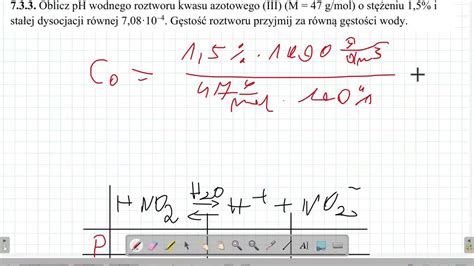 7.3.3. Oblicz pH wodnego roztworu kwasu azotowego (III) (M = 47 g/mol) o stężeniu 1,5% i
stałej dysocjacji równej 7,08·10⁻⁴. Gęstość roztworu przyjmij za równą gęstości wody.
C₀ = 1,5%·1000 g/dm³
47 g/mol · 100%
+
HNO₂ H₂O ⇄ H⁺ + NO₂⁻
P